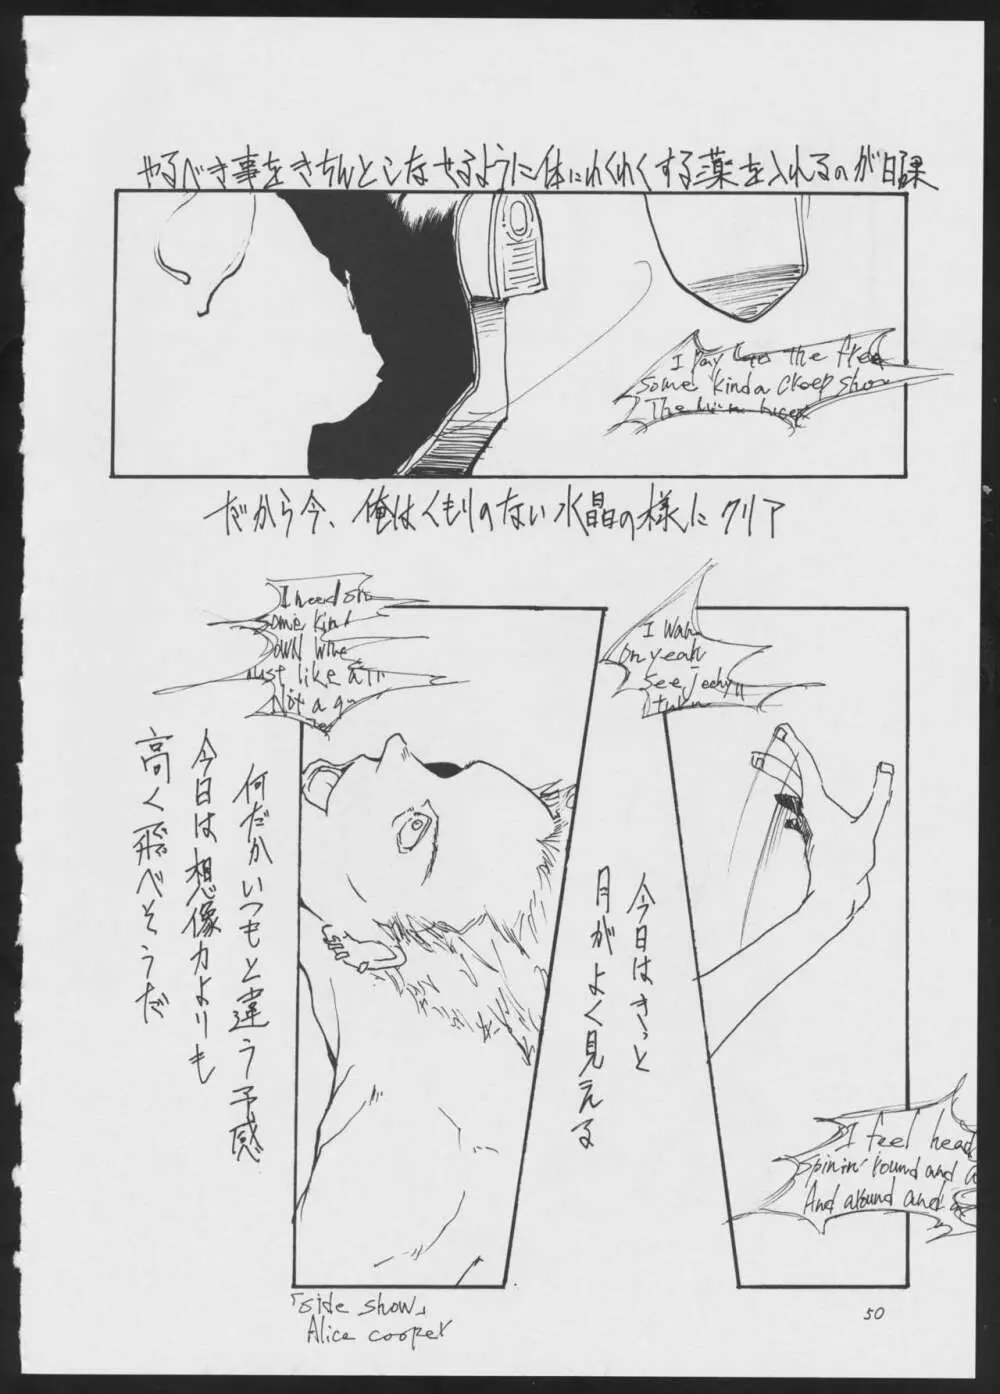 やるべき事をきちんとこなせるように体にわくわくする薬を入れるのが日課
I pay the free
some kinda creep show
だから今、俺はくもりのない水晶の様にクリア
I wan
on yeah
see
I need
some kin
own
just like a
Not a
今日はきっと
月がよく見える
何だかいつもと違う予感
今日は想像力よりも
高く飛べそうだ
I feel head
spinin' round and a
And around and
「side show」
Alice cooper
50